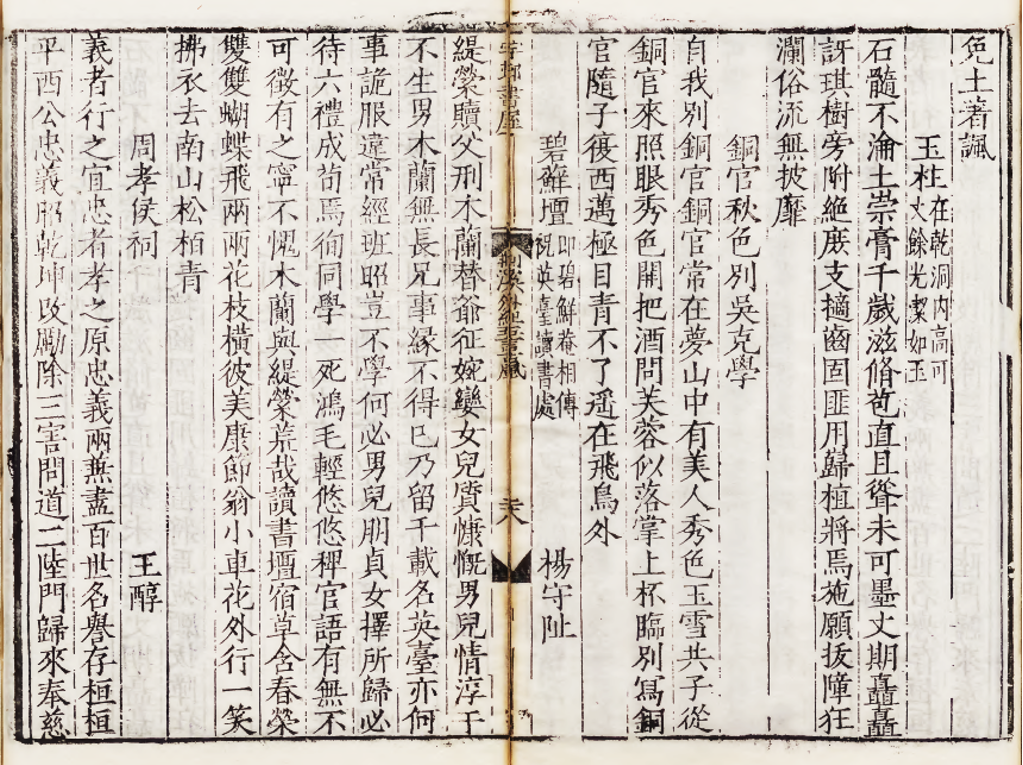 免土著諷
玉柱在乾洞内高可丈餘光潔如玉
石髓不淪土崇膏千歲滋脩苞直且聳未可墨丈期矗矗
訝琪樹旁附絶庋支擿齒固匪用歸植將焉施願扳障狂
瀾俗流無披靡
銅官秋色別吳克學
自我別銅官銅官常在夢山中有美人秀色玉雪共子從
銅官來照眼秀色開把酒問芙蓉似落掌上杯臨別冩銅
官隨子復西邁極目青不了遥在飛鳥外
碧鮮壇即碧鮮菴相傳祝英臺讀書處 楊守阯
緹縈贖父刑木蘭替爺征婉孌女兒質慷慨男兒情淳于
不生男木蘭無長兄事縁不得已乃留千載名英臺亦何
事詭服違常經班昭豈不學何必男兒朋貞女擇所歸必
待六禮成茍焉徇同學一死鴻毛輕悠悠稗官語有無不
可徵有之寧不愧木蘭與緹縈荒哉讀書壇宿草含春榮
雙雙蝴蝶飛兩兩花枝横彼美康節翁小車花外行一笑
拂衣去南山松栢青
周孝侯祠 王醇
義者行之宜忠者孝之原忠義兩無盡百世名譽存桓桓
平西公忠義昭乾坤改勵除三害問道二陸門歸來奉慈